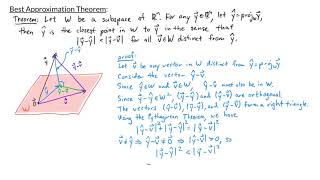 Best Approximation Theorem:
Theorem: Let W be a subspace of ℝⁿ. For any ȳ∈ℝⁿ, let ŷ = proj_W ȳ,
then ŷ is the closest point in W to ȳ in the sense that
|ȳ-ŷ| < |ȳ-v̄| for all v̄∈W distinct from ŷ.
proof:
Let v̄ be any vector in W distinct from ŷ = proj_W ȳ
Consider the vector ŷ-v̄.
Since ŷ∈W and v̄∈W, ŷ-v̄ must also be in W.
Since ȳ-ŷ ∈ W^⊥, (ȳ-ŷ) and (ŷ-v̄) are orthogonal.
The vectors (ȳ-v̄), (ȳ-ŷ), and (ŷ-v̄) form a right triangle.
Using the Pythagorean Theorem, we have
|ŷ-v̄|² + |ȳ-ŷ|² = |ȳ-v̄|²
v̄≠ŷ ⇒ ŷ-v̄≠0̄ ⇒ |ŷ-v̄|>0, so
|ȳ-ŷ|² < |ȳ-v̄|²
W
ȳ
ȳ-ŷ
ȳ-v̄
ŷ
v̄
ŷ-v̄